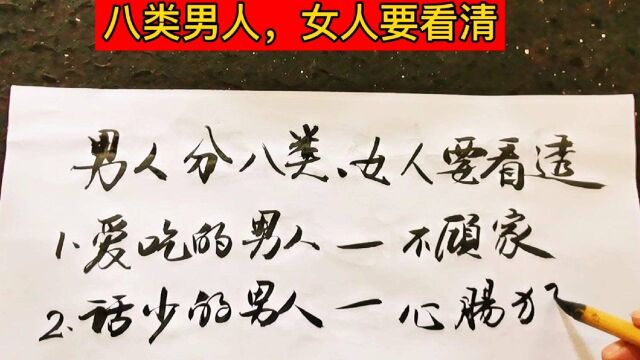 八类男人，女人要看清
男人分八类、女人要看透
1.爱吃的男人一不顾家
2.话少的男人一心腸